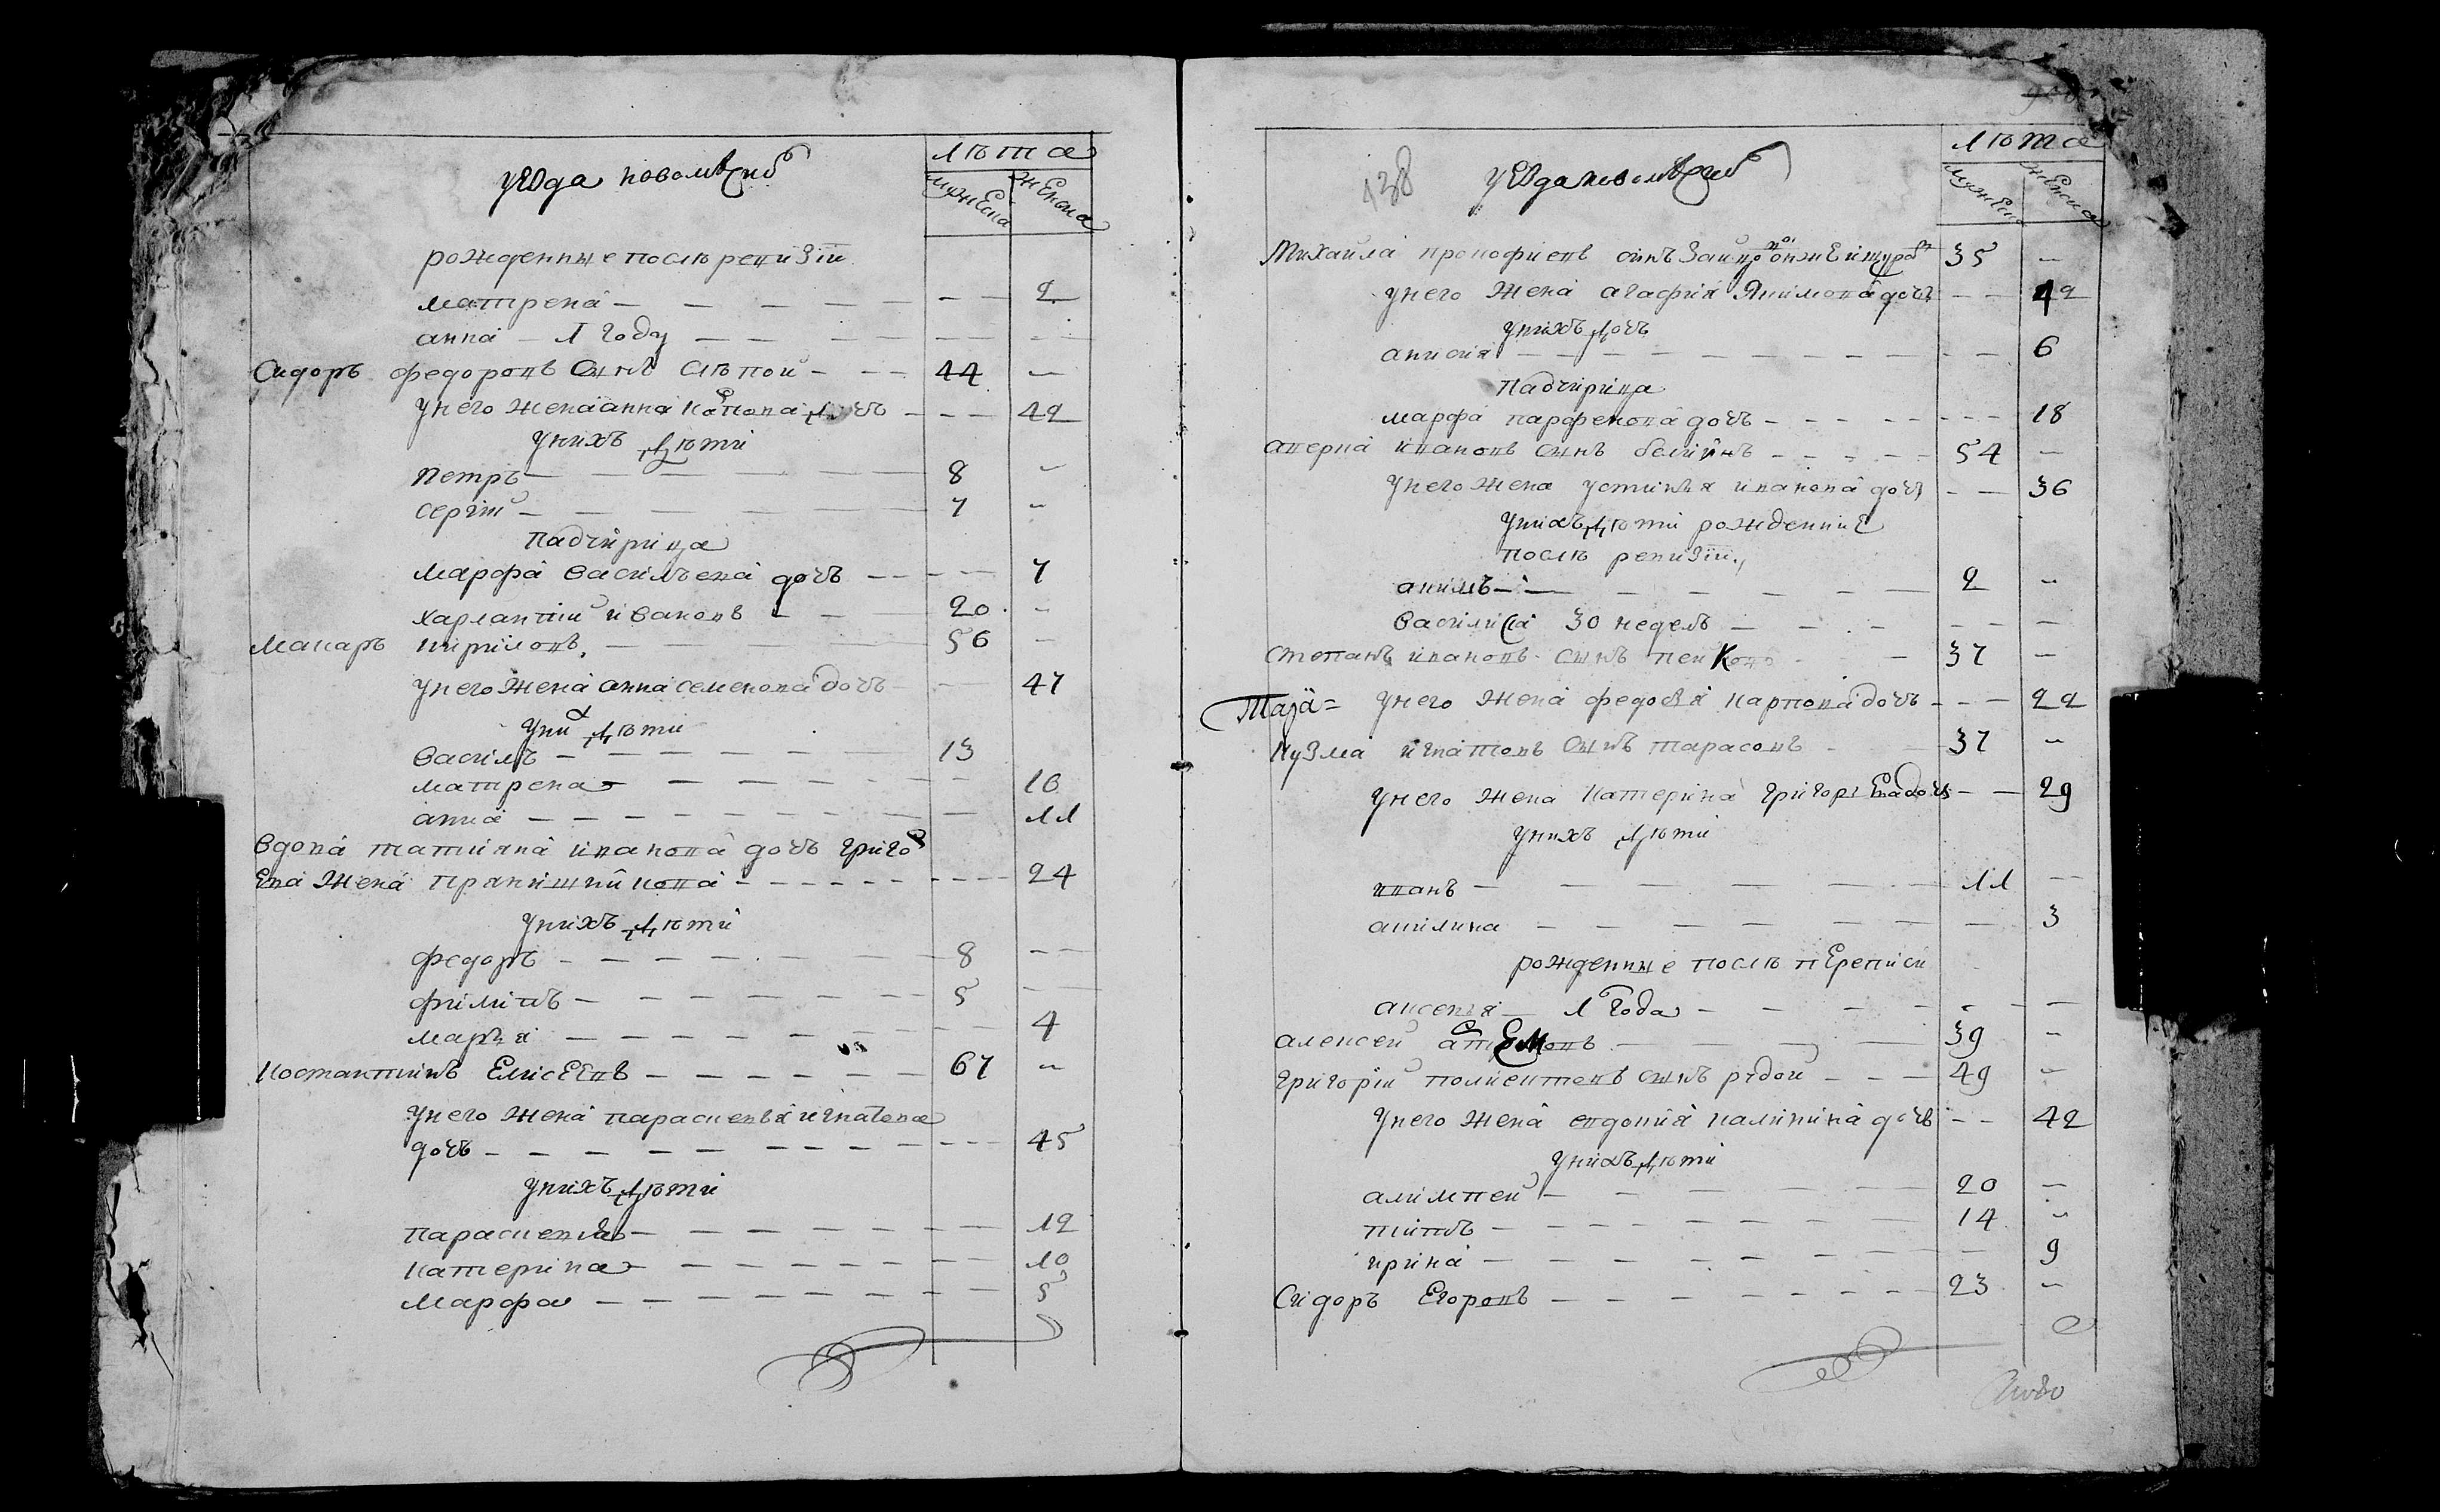 лѣта
мужеска женска
рожденные после ревизiи
матрена — 2
анна — 1 году
Сидоръ федоровъ сынъ слѣпой — 44 —
у него жена анна дочь — 42
у нихъ дѣти
петръ — 8 —
сергiй — 7 —
падчирица
марфа васильева дочь — 7
харлантiй ивановъ — 20 —
макаръ кирiловъ — 56 —
у него жена анна семенова дочь — 47
у них дѣти
василь — 13
матрена — 16
анна — 11
вдова татияна иванова дочь григо
ева жена — 24
у нихъ дѣти
федоръ — 8 —
филипъ — 5 —
марья — 4
костантинъ Елисеевъ — 67 —
у него жена парасковья игнатева
дочь — 45
у нихъ дѣти
парасковья — 12
катерина — 10
марфа — 5
138
лѣта
мужеска женска
Михайла прокофиевъ сынъ 35 —
у него жена агафия дочь — 42
у нихъ дочь
анисия — 6
падчирица
марфа парфенова дочь — 18
аверка ивановъ сынъ — 54 —
у него жена устинья иванова дочь — 36
у нихъ дѣти рожденние
послѣ ревизiи
акимъ — 2 —
василиса 30 недель —
степанъ ивановъ сынъ 37 —
у него жена федосья карпова дочь — 22
кузма игнатовъ сынъ тарасовъ — 37 —
у него жена катерина григорiева дочь — 29
у нихъ дѣти
иванъ — 11 —
акилина — 3
рожденные послѣ переписи
аксенья — 1 года —
алексей — 39 —
григорiй сынъ рябой — 49 —
у него жена евдокия калинина дочь — 42
у нихъ дѣти
алимпей — 20 —
титъ — 14 —
ирина — 9
Сидоръ Егоровъ — 23 —